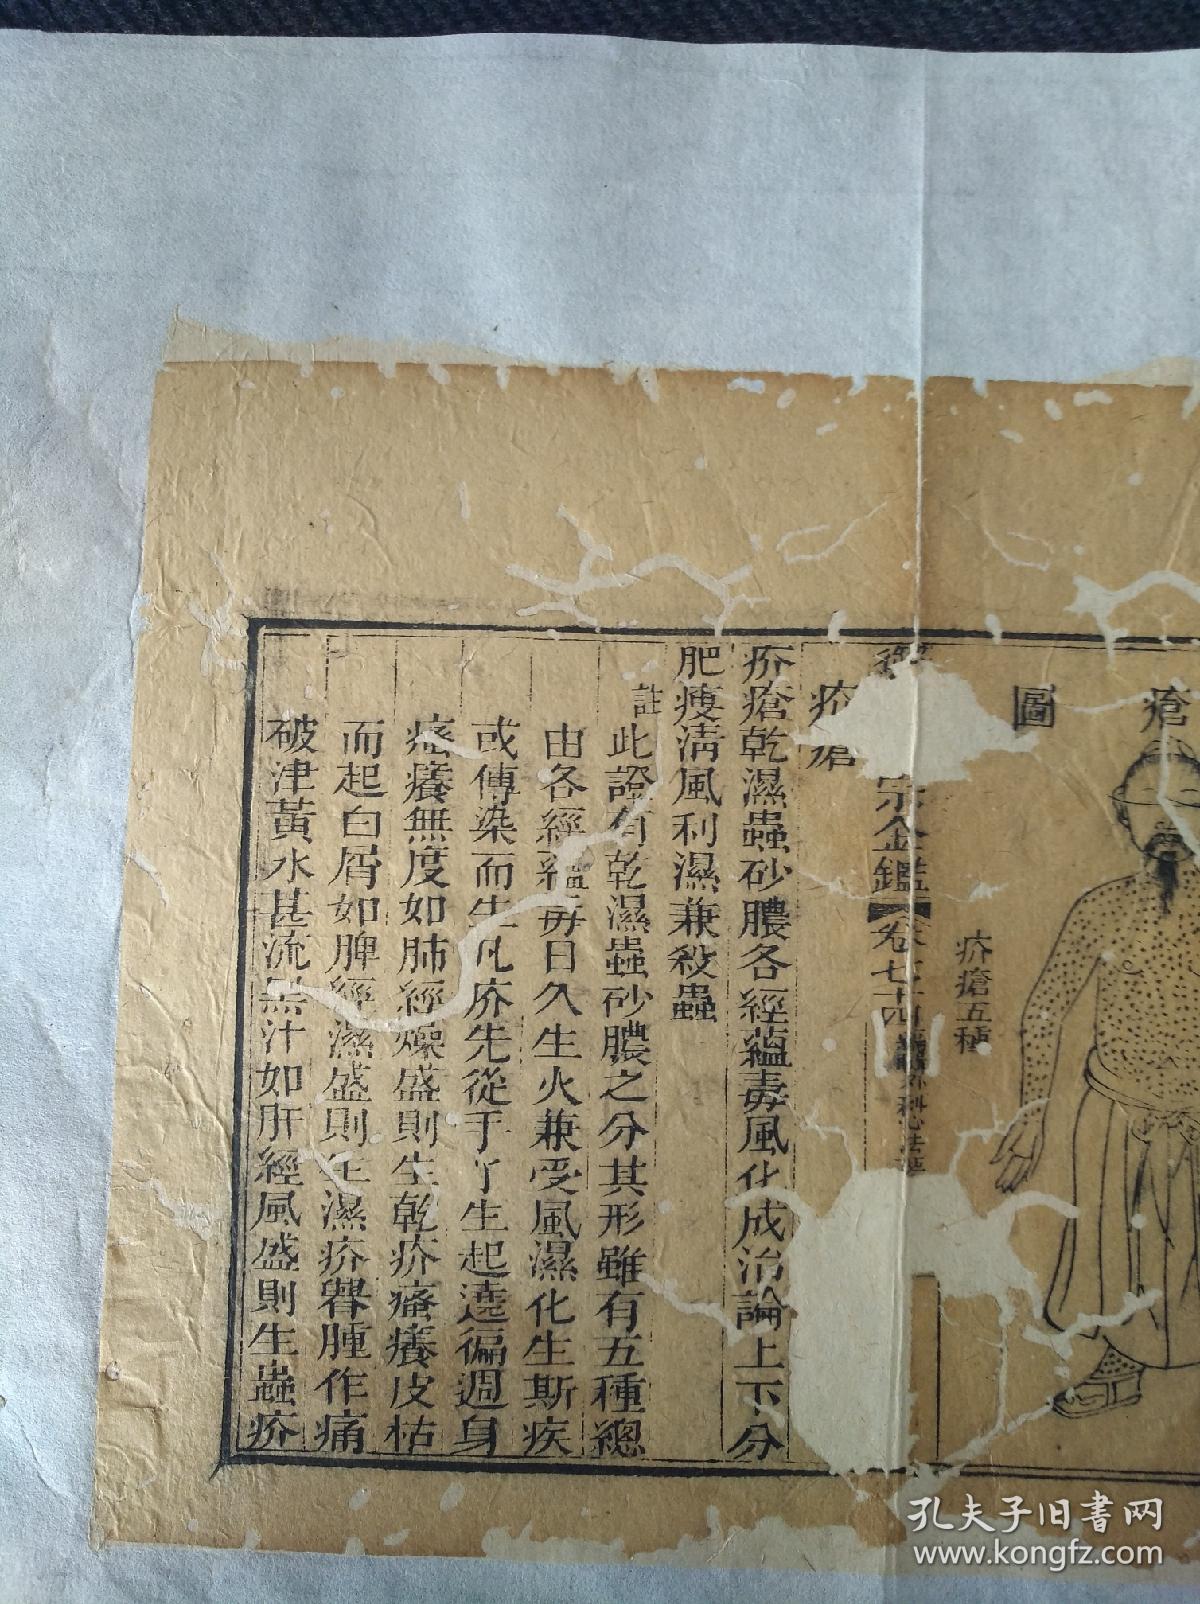 瘡
圖
疥瘡五種
宗金鑑 卷七十四 外科心法
疥瘡
疥瘡乾濕蟲砂膿各經蘊毒風化成治論上下分
肥瘦清風利濕兼殺蟲
註此證有乾濕蟲砂膿之分其形雖有五種總
由各經蘊毒日久生火兼受風濕化生斯疾
或傳染而生凡疥先從手丫生起遶徧週身
瘙癢無度如肺經燥盛則生乾疥瘙癢皮枯
而起白屑如脾經濕盛則生濕疥㿔腫作痛
破津黃水甚流黑汁如肝經風盛則生蟲疥
孔夫子旧书网
www.kongfz.com